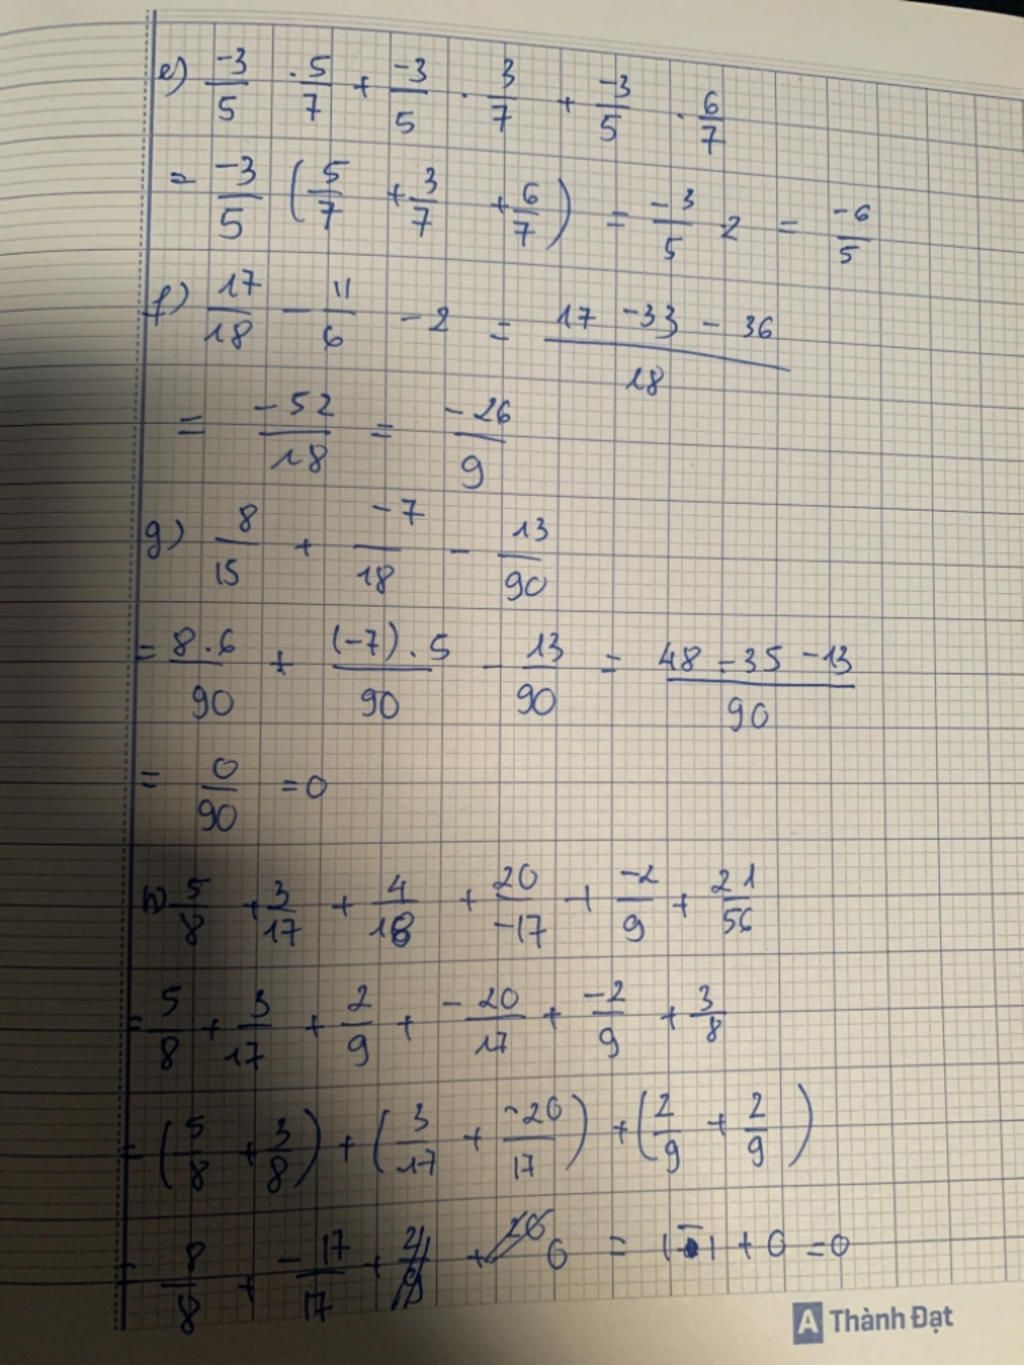 e) -3/5 . 5/7 + -3/5 . 3/7 + -3/5 . 6/7
= -3/5 (5/7 + 3/7 + 6/7) = -3/5 2 = -6/5
f) 17/18 - 11/6 - 2 = (17 - 33 - 36)/18
= -52/18 = -26/9
g) 8/15 + -7/18 - 13/90
= 8.6/90 + (-7).5/90 - 13/90 = (48 - 35 - 13)/90
= 0/90 = 0
h) 5/8 + 3/17 + 4/18 + 20/-17 + -2/9 + 21/56
= 5/8 + 3/17 + 2/9 + -20/17 + -2/9 + 3/8
= (5/8 + 3/8) + (3/17 + -20/17) + (2/9 + 2/9)
= 8/8 + -17/17 + 0 = 1 - 1 + 0 = 0
A Thành Đạt